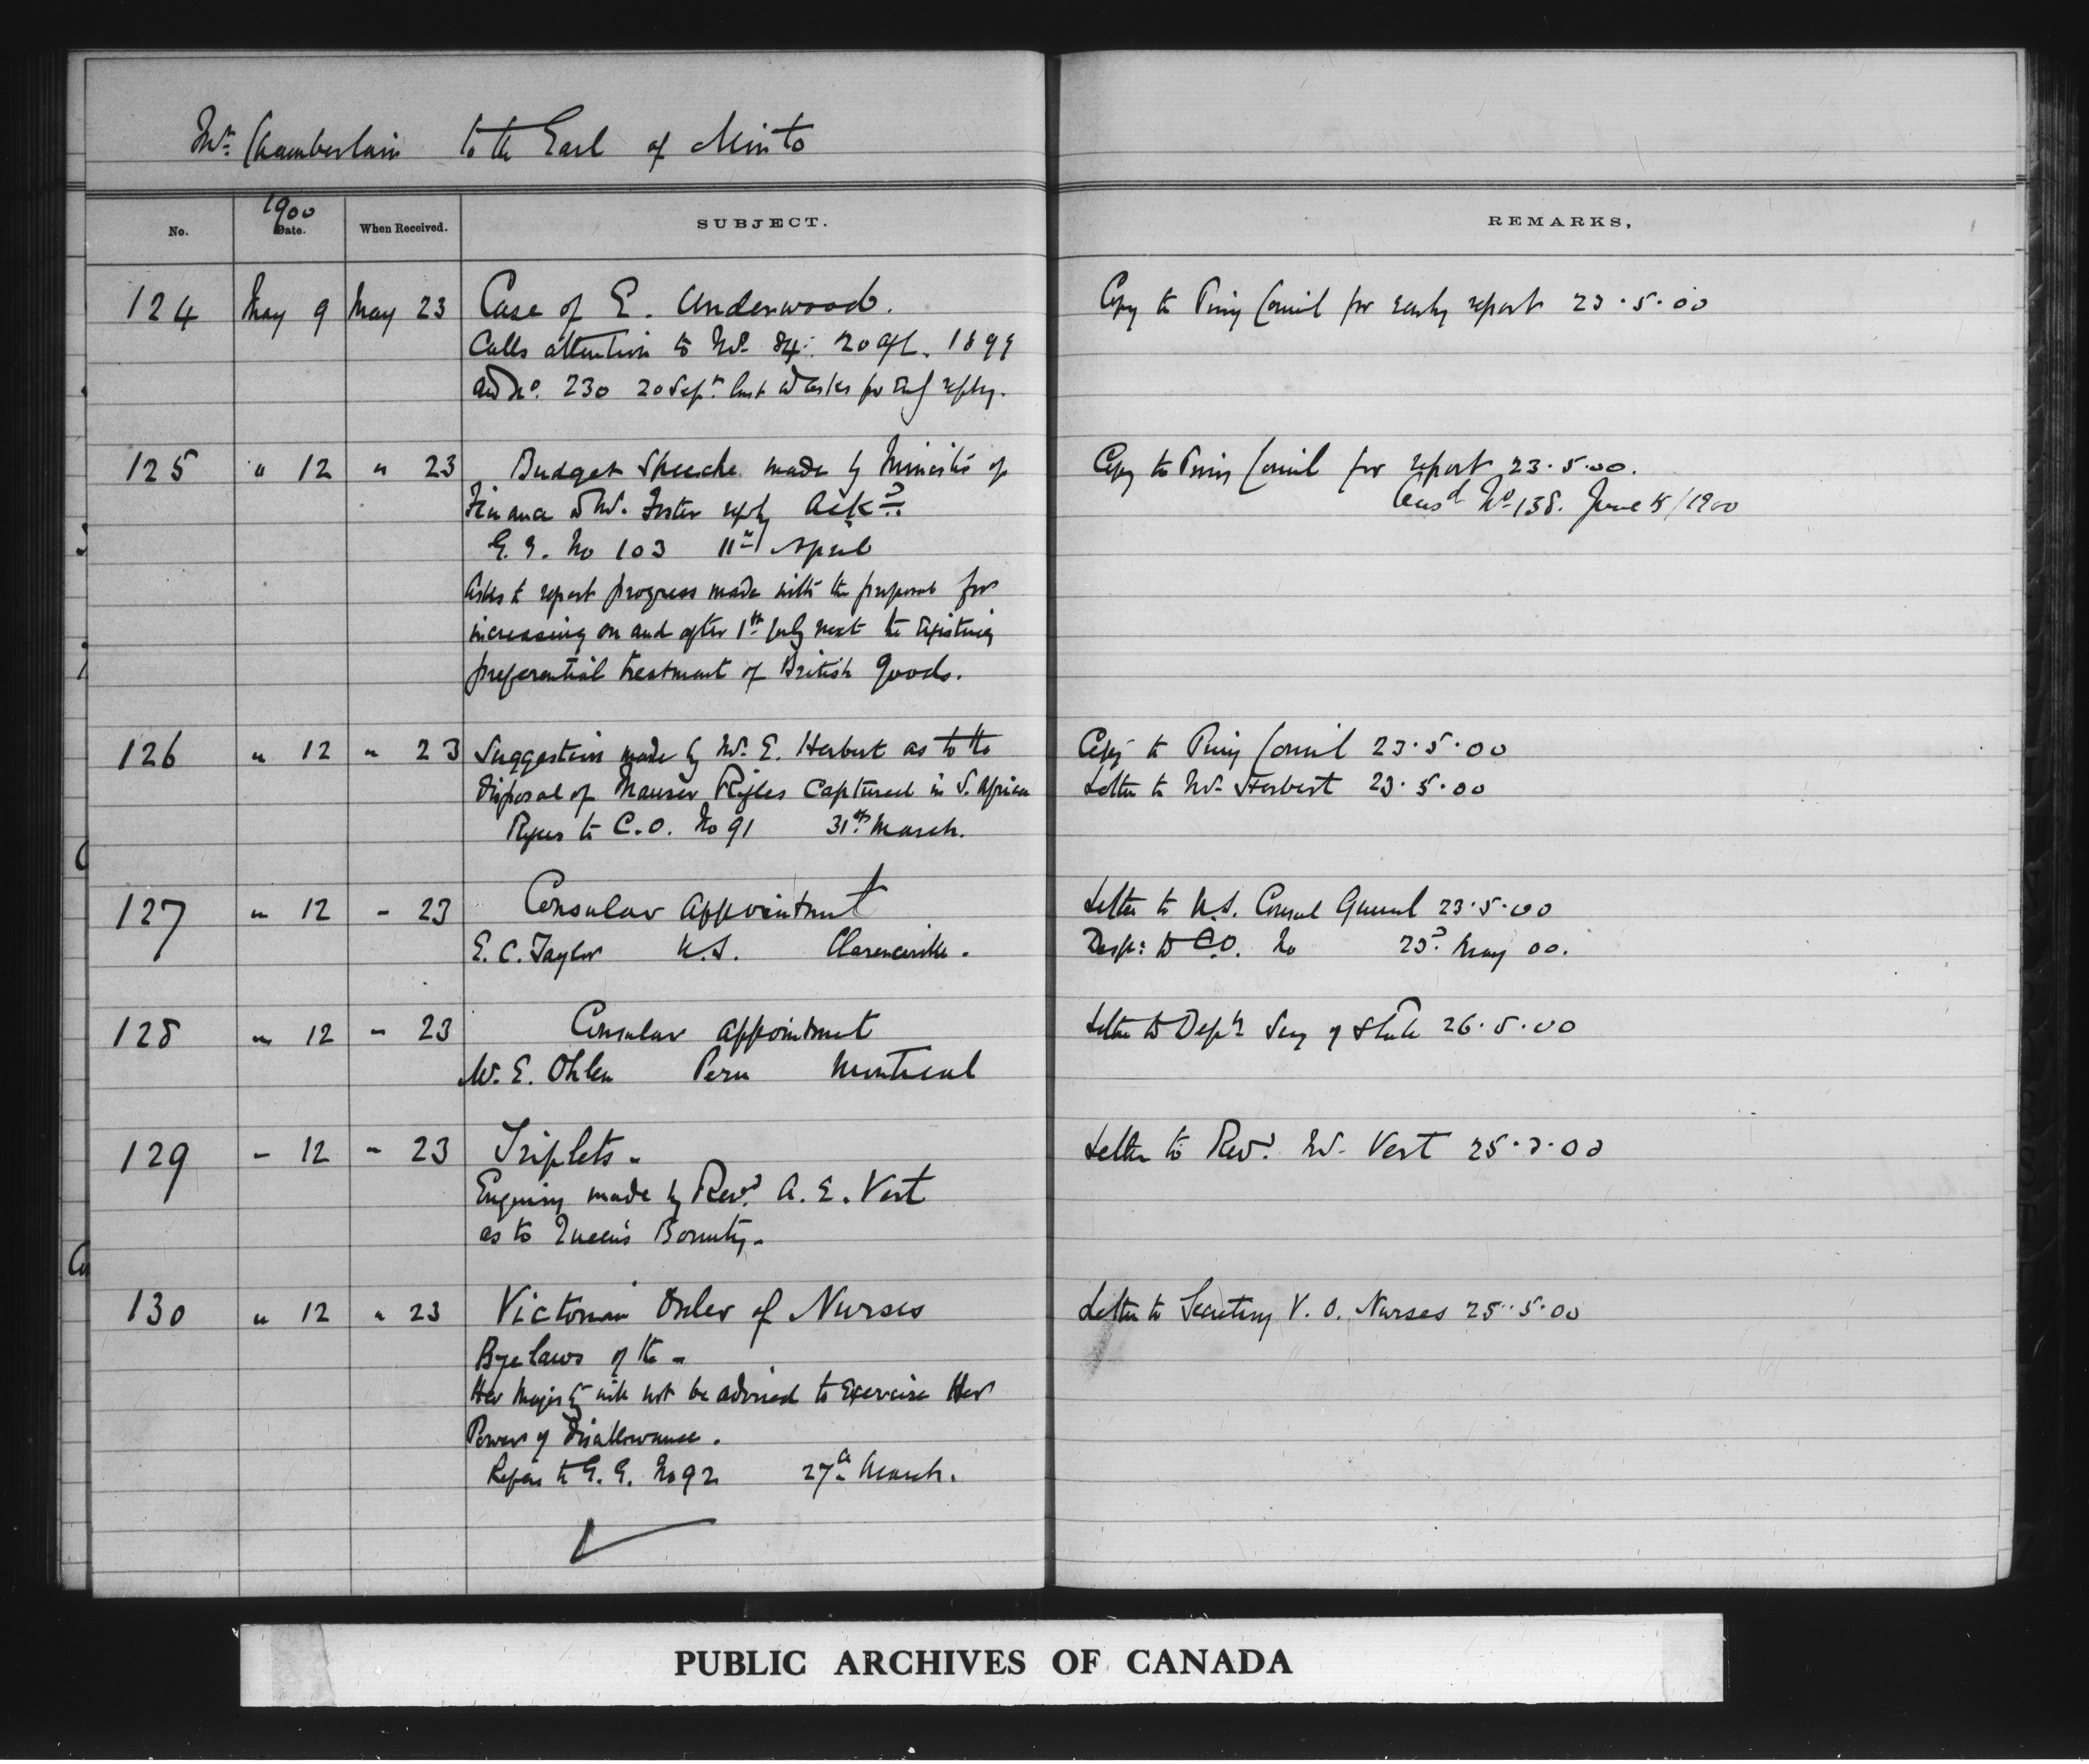 Mr. Chamberlain to the Earl of Minto
1900
No. Date. When Received. SUBJECT. REMARKS.
124 May 9 May 23 Case of E. Underwood. Copy to Privy Council for early report 23.5.00
Calls attention to No. 84. 20 Apl. 1899
and No. 230 20 Sepr. last & asks for early reply.
125 " 12 " 23 Budget Speeche made by Minister of Copy to Privy Council for report 23.5.00.
Finance & Mr. Foster reply Ackd. Ansd No 138. June 5/1900
G.G. No 103 11th April
Asks to report progress made with the proposal for
increasing on and after 1st July next the existing
preferential treatment of British goods.
126 " 12 " 23 Suggestion made by Mr. E. Herbert as to the Copy to Privy Council 23.5.00
disposal of Mauser Rifles Captured in S. Africa Letter to Mr. Herbert 23.5.00
Refers to C.O. No 91 31st March.
127 " 12 - 23 Consular appointment Letter to U.S. Consul General 23.5.00
E. C. Taylor U.S. Clarenceville. Desp: to C.O. No 23d May 00.
128 " 12 - 23 Consular appointment Letter to Depy Secy of State 26.5.00
W. E. Ohlen Peru Montreal
129 - 12 - 23 Triplets. Letter to Revd. Mr. Vert
Enquiry made by Revd. A. E. Vert
as to Queen's Bounty.
130 " 12 " 23 Victorian Order of Nurses Letter to Secretary V. O. Nurses 25.5.00
Bye laws of the -
Her Majesty will not be advised to exercise Her
Power of Disallowance.
Refers to G.G. No 92 27th March.
PUBLIC ARCHIVES OF CANADA